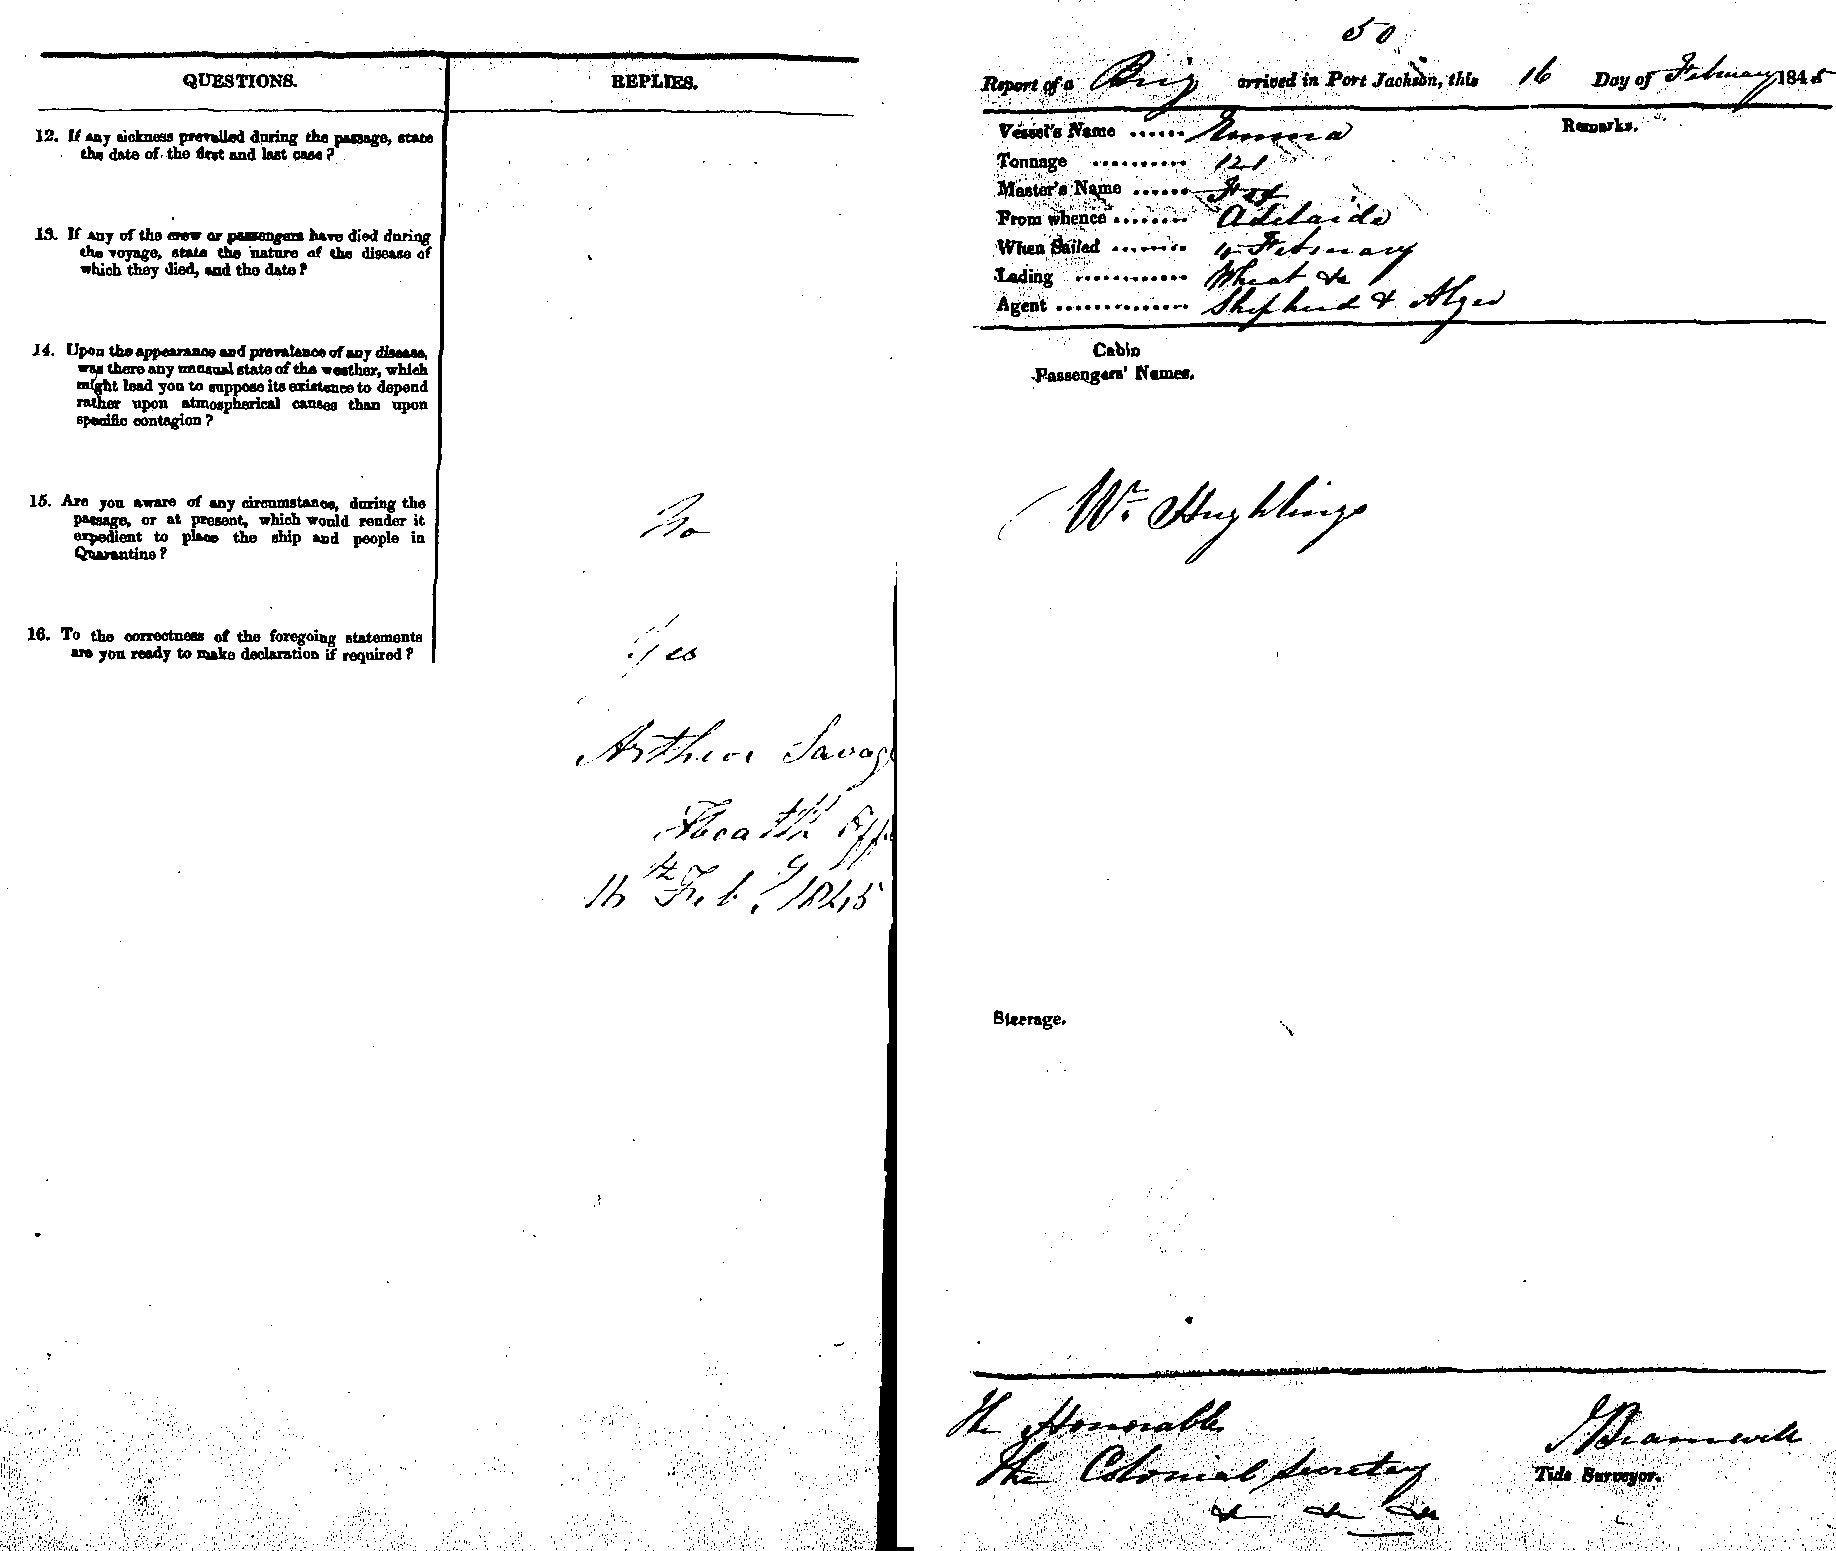 QUESTIONS.
REPLIES.
12. If any sickness prevailed during the passage, state
the date of the first and last case?
13. If any of the crew or passengers have died during
the voyage, state the nature of the disease of
which they died, and the date?
14. Upon the appearance and prevalence of any disease,
was there any unusual state of the weather, which
might lead you to suppose its existence to depend
rather upon atmospherical causes than upon
specific contagion?
15. Are you aware of any circumstance, during the
passage, or at present, which would render it
expedient to place the ship and people in
Quarantine?
No
16. To the correctness of the foregoing statements
are you ready to make declaration if required?
Yes
Arthur Savage
Health Off
16th Feby 1845
50
Report of a Brig arrived in Port Jackson, this 16 Day of February 1845
Vessel's Name ...... Emma
Remarks.
Tonnage .......... 121
Master's Name ...... Fox
From whence ........ Adelaide
When Sailed ....... 4 February
Lading ............ Wheat &c
Agent .............. Shepherd & Alger
Cabin
Passengers' Names.
Wm. Hughlings
Steerage.
The Honorable
The Colonial Secretary
&c &c &c
J Bramwell
Tide Surveyor.